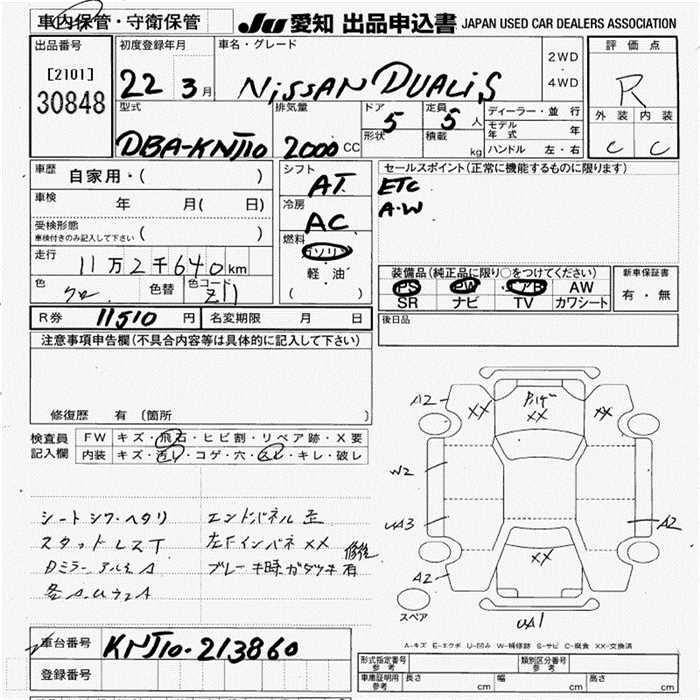 車内保管・守衛保管 JU 愛知 出品申込書 JAPAN USED CAR DEALERS ASSOCIATION
出品番号 初度登録年月 車名・グレード 評価点
[2101] 22 3月 NISSAN DUALIS 2WD ・ 4WD R
30848
型式 排気量 ドア 定員 ディーラー・並行 外装 内装
DBA-KNJ10 2000CC 5 5人 モデル年式 年 C C
形状 積載 kg ハンドル 左・右
車歴 自家用・( ) シフト AT セールスポイント(正常に機能するものに限ります)
車検 年 月( 日) 冷房 AC ETC
受検形態 車検付きのみ記入して下さい ( ) 燃料 A・W
走行 11万2千640km ガソリン ・ 軽油 ( )
装備品(純正品に限り○をつけてください) 新車保証書
色 クロ 色替 色コード Z11 PS PW エアB AW 有・無
SR ナビ TV カワシート
R券 11510円 名変期限 月 日 後日品
注意事項申告欄(不具合内容等は具体的に記入して下さい)
修復歴 有 〔箇所 〕
検査員記入欄 FW キズ・飛石・ヒビ割・リペア跡・X要
内装 キズ・汚レ・コゲ・穴・スレ・キレ・破レ
シートシワ・ヘタリ エンドパネル 歪
スタットレスT 左Fインパネ XX 修後
Dミラー アルミA ブレーキ時ガタツキ有
各A.Uウス A
A2 XX XX XX
W2
UA3 A2
A2 XX
スペア UA1
A-キズ E-エクボ U-凹み W-補修跡 S-サビ C-腐食 XX-交換済
車台番号 KNJ10-213860
登録番号
形式指定番号 参考 類別区分番号 参考
車庫証明用 参考 長さ cm 幅 cm 高さ cm